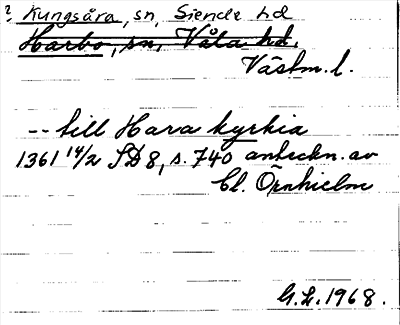 ? Kungsåra, sn, Siende hd
Harbo, sn, Våla hd.
Västm. l.
-- till Hara kyrkia
1361 14/2 SD 8, s. 740 anteckn. av
Cl. Örnhielm
G.L. 1968.